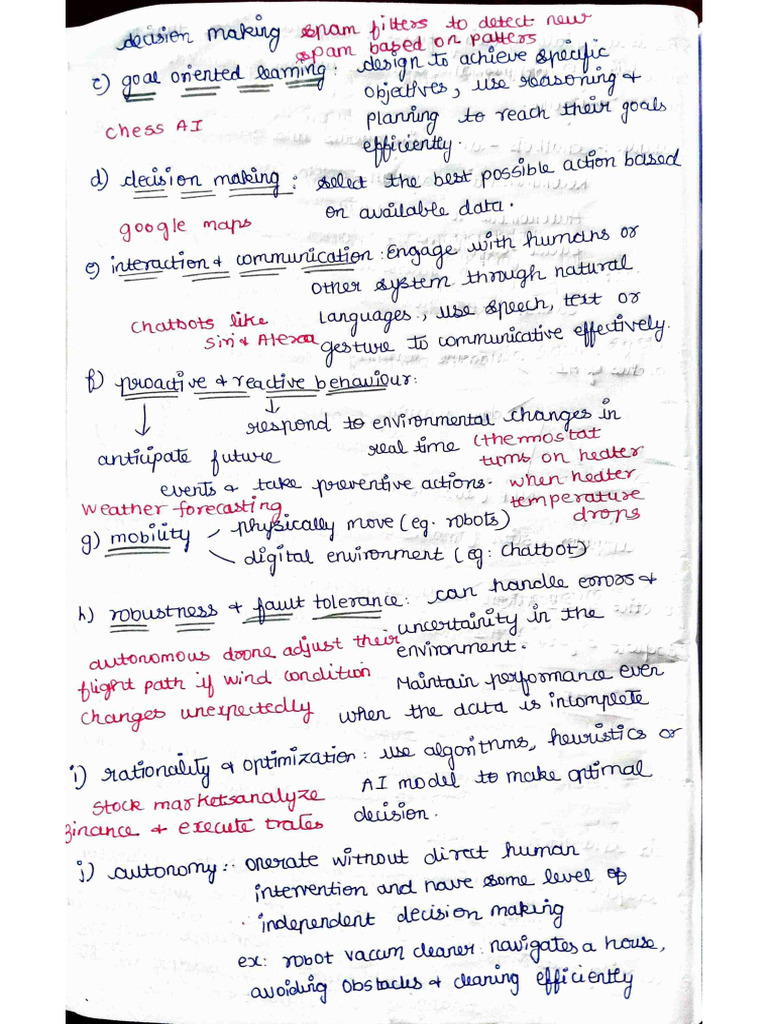 decision making spam filters to detect new
spam based on patters
c) goal oriented learning : design to achieve specific
objectives, use reasoning &
planning to reach their goals
efficiently.
chess AI
d) decision making : select the best possible action based
on available data.
google maps
e) interaction & communication : Engage with humans or
other system through natural
languages, use speech, text or
gesture to communicative effectively.
chatbots like
Siri & Alexa
f) proactive & reactive behaviour:
↓ ↓
respond to environmental changes in
real time (thermostat
turns on heater
when heater
temperature
drops
anticipate future
events & take preventive actions.
weather forecasting
g) mobility - physically move (eg. robots)
- digital environment (eg: chatbot)
h) robustness & fault tolerance: can handle errors &
uncertainity in the
environment.
autonomous drone adjust their
flight path if wind condition
changes unexpectedly
Maintain performance even
when the data is incomplete
i) rationality & optimization : use algorithms, heuristics or
AI model to make optimal
decision.
stock markets analyze
finance & execute trates
j) autonomy :- operate without direct human
intervention and have some level of
independent decision making
ex: robot vaccum cleaner: navigates a house,
avoiding obstacles & cleaning efficiently